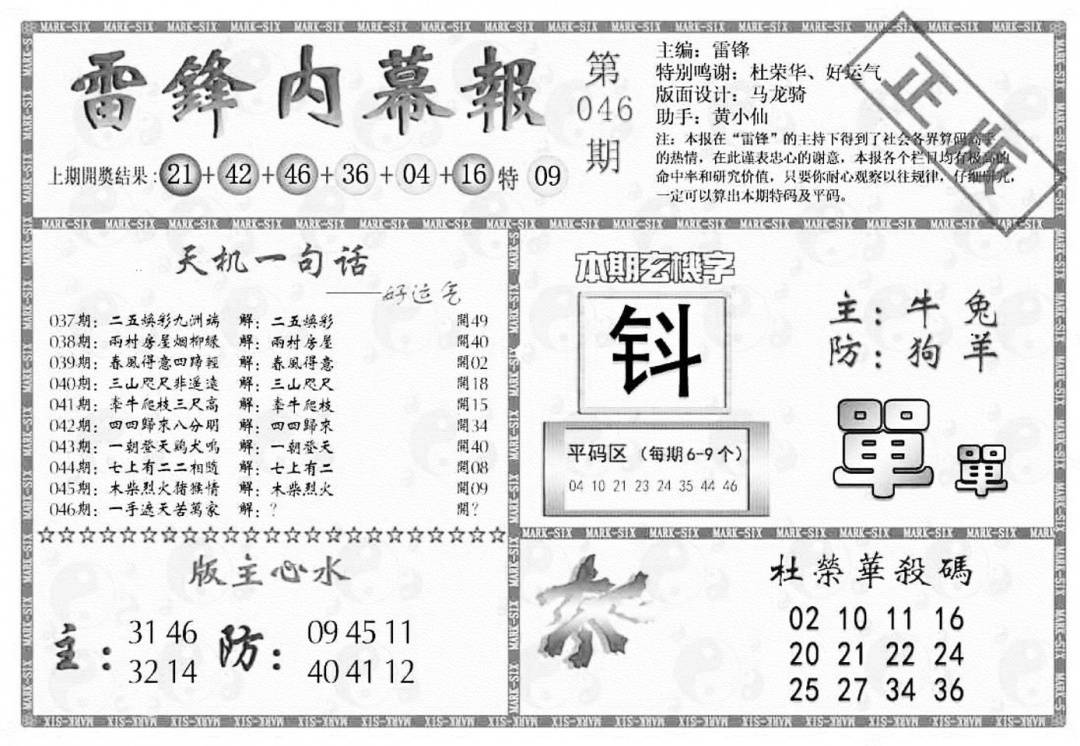 雷鋒内幕報
第
046
期
主编：雷锋
特别鸣谢：杜荣华、好运气
版面设计：马龙骑
助手：黄小仙
注：本报在“雷锋”的主持下得到了社会各界算码高手
的热情，在此谨表忠心的谢意，本报各个栏目均有极高的
命中率和研究价值，只要你耐心观察以往规律，仔细研究，
一定可以算出本期特码及平码。
正版
上期開獎结果：21+42+46+36+04+16特09
天机一句话
——好运气
037期：二五焕彩九洲端 解：二五焕彩 開49
038期：兩村房屋烟柳緣 解：兩村房屋 開40
039期：春風得意四蹄輕 解：春風得意 開02
040期：三山咫尺非遥遠 解：三山咫尺 開18
041期：牽牛爬枝三尺高 解：牽牛爬枝 開15
042期：四四歸來八分明 解：四四歸來 開34
043期：一朝登天鷄犬鸣 解：一朝登天 開40
044期：七上有二二相随 解：七上有二 開08
045期：木柴烈火猪猴情 解：木柴烈火 開09
046期：一手遮天苦萬家 解：？ 開？
☆☆☆☆☆☆☆☆☆☆☆☆☆☆☆☆☆☆☆☆☆☆☆
本期玄機字
钭
主：牛 兔
防：狗 羊
單 單
平码区（每期6-9个）
04 10 21 23 24 35 44 46
版主心水
主：31 46 防：09 45 11
32 14 40 41 12
杜榮華殺碼
02 10 11 16
20 21 22 24
25 27 34 36
MARK-SIX